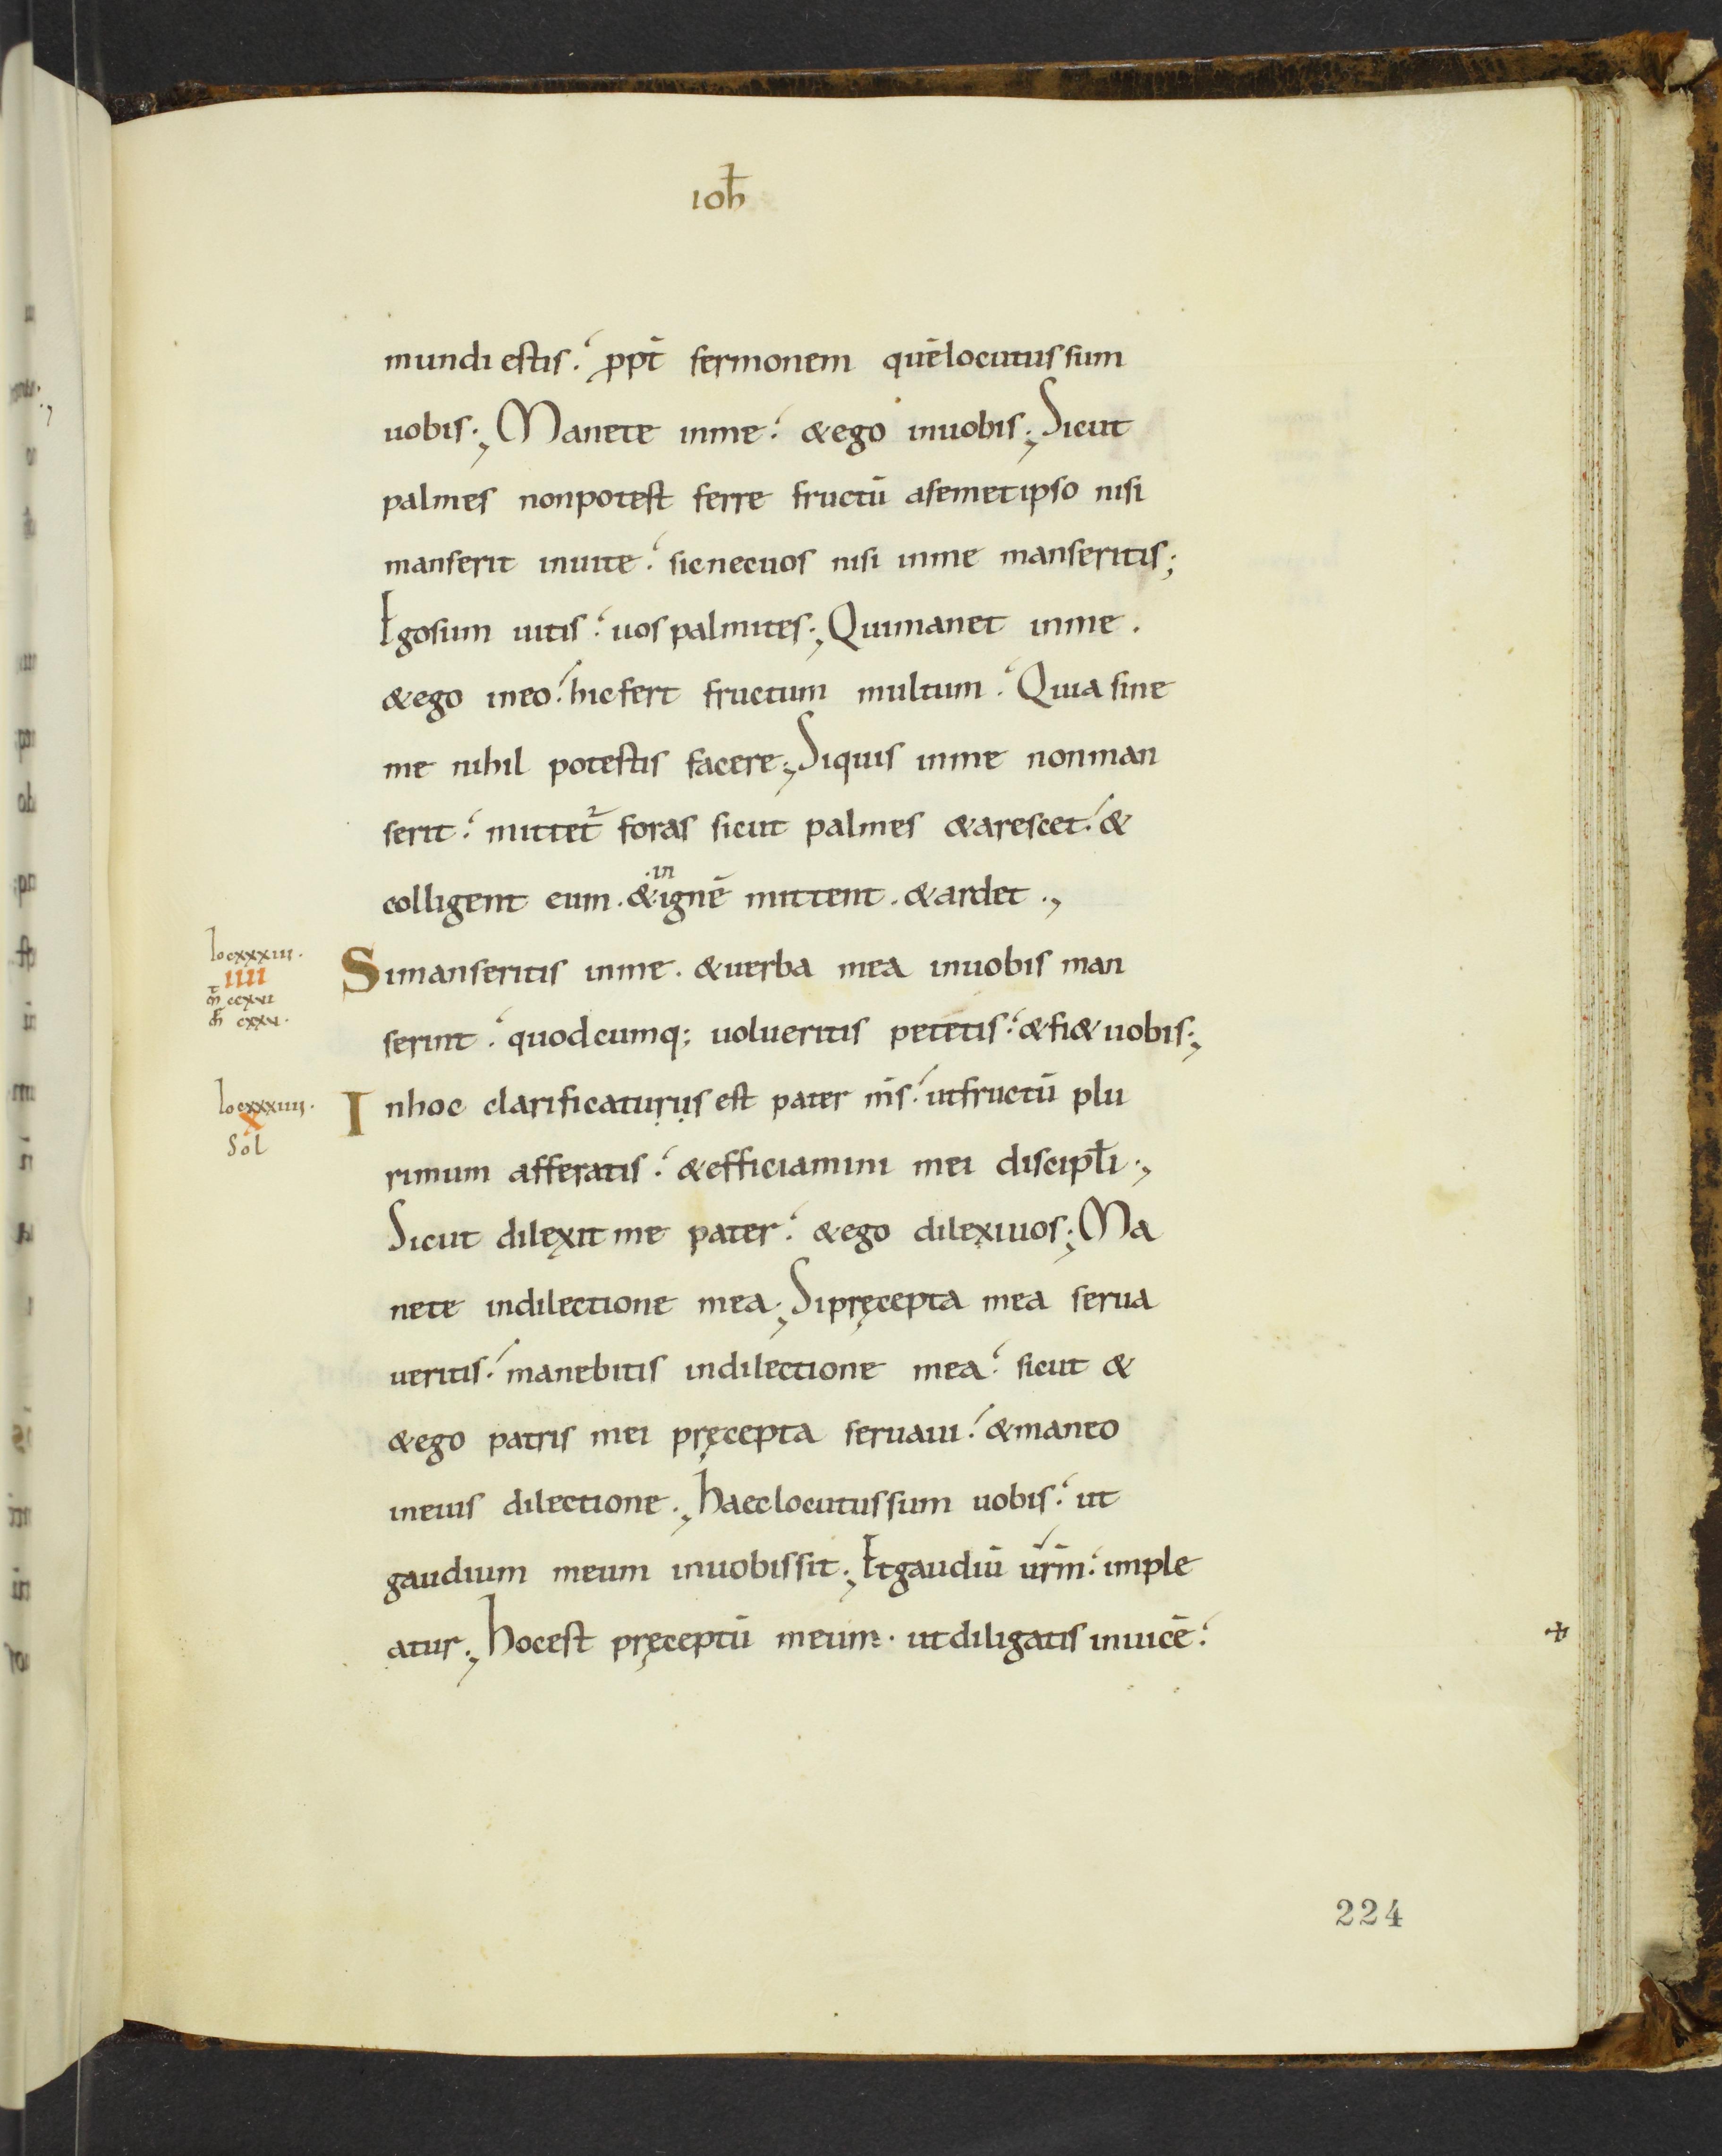 ioħ
mundi estis. ppt̄ sermonem quē locutus sum
uobis; Manete inme. & ego inuobis; Sicut
palmes nonpotest ferre fructū asemetipso nisi
manserit inuite. sicnecuos nisi inme manseritis;
Egosum uitis. uos palmites; Quimanet inme.
& ego ineo. hicfert fructum multum. Quia sine
me nihil potestis facere; Siquis inme nonman
serit. mittet̄ foras sicut palmes & arescet. &
colligent eum. & in ignē mittent. & ardet.,
Iocxxxiii.
iiii
m̄t ccxvi
m̄r cxxv.
Simanseritis inme. & uerba mea inuobis man
serint. quodcumq; uolueritis petetis. & fi& uobis;
Iocxxxiiii.
X
Sol
Inhoc clarificaturus est pater m̄s. utfructū plu
rimum afferatis. & efficiamini mei discipłi.,
Sicut dilexit me pater. & ego dilexiuos; Ma
nete indilectione mea; Sipręcepta mea serua
ueritis. manebitis indilectione mea. sicut &
& ego patris mei pręcepta seruaui. & maneo
ineius dilectione; haeclocutussum uobis. ut
gaudium meum inuobissit; Etgaudiū ur̄m. imple
atur; hocest pręceptū meum. utdiligatis inuicē.
224